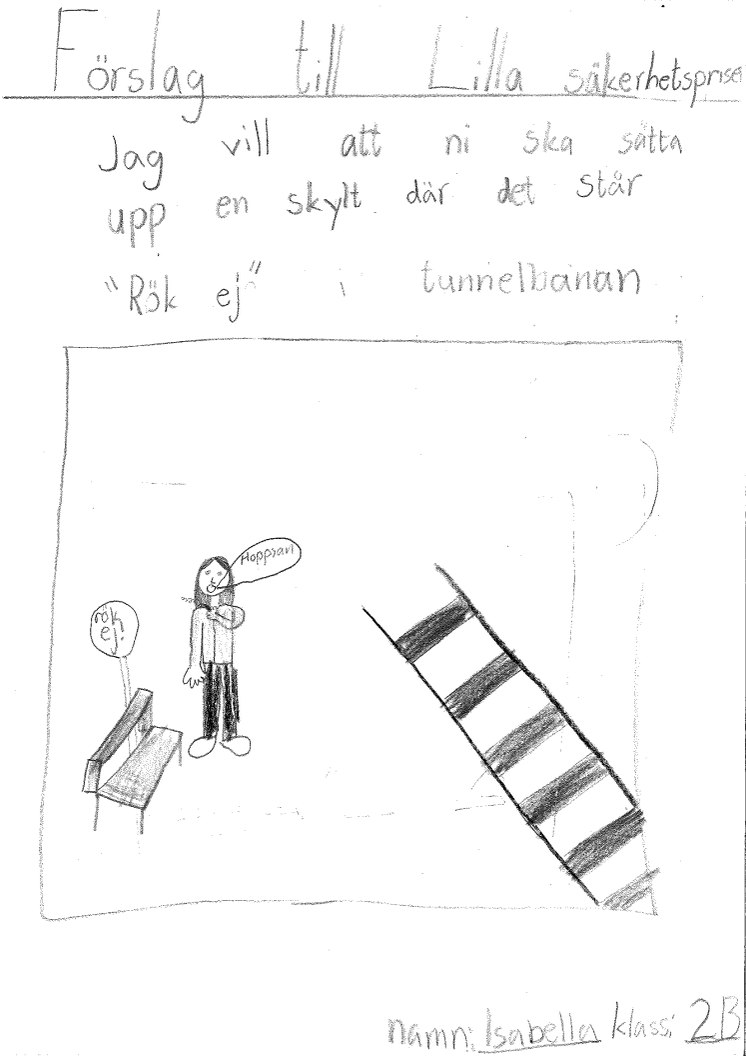 Förslag till Lilla säkerhetspriset
Jag vill att ni ska sätta
upp en skylt där det står
"Rök ej" i tunnelbanan
Hoppsan
rök
ej!
namn: Isabella klass: 2B